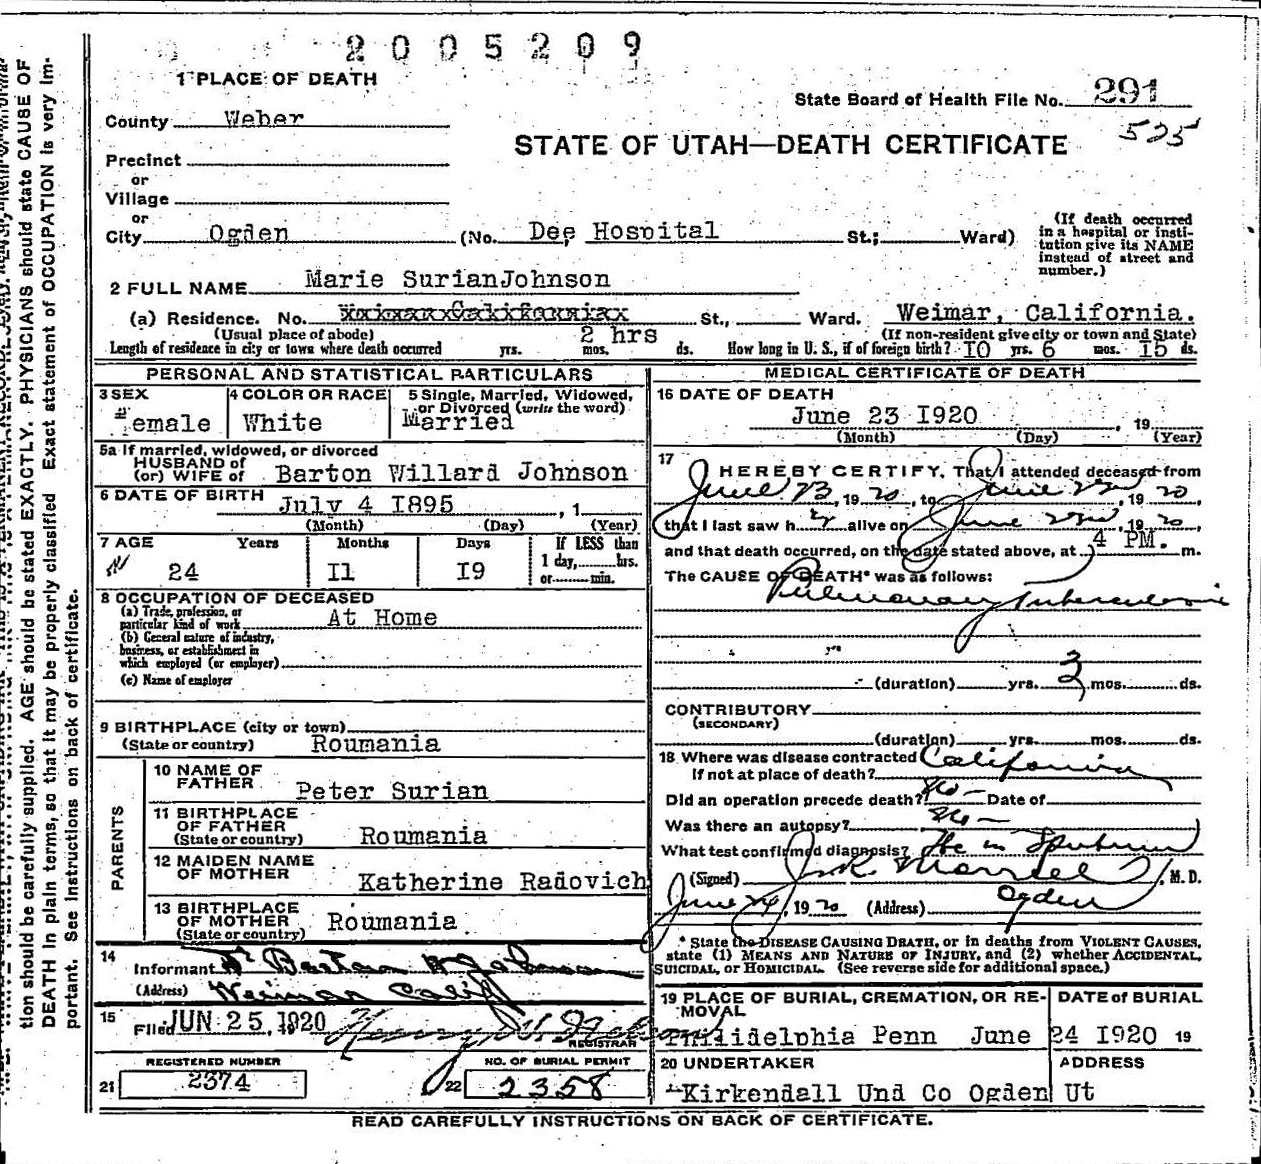 2005209
1 PLACE OF DEATH
State Board of Health File No. 291
County Weber
525
STATE OF UTAH—DEATH CERTIFICATE
Precinct
or
Village
or
City Ogden (No. Dee Hospital St.; Ward)
(If death occurred in a hospital or institution give its NAME instead of street and number.)
2 FULL NAME Marie SurianJohnson
(a) Residence. No. St., Ward. Weimar, California.
(Usual place of abode) (If non-resident give city or town and State)
Length of residence in city or town where death occurred yrs. mos. 2 hrs ds. How long in U. S., if of foreign birth? I0 yrs. 6 mos. I5 ds.
PERSONAL AND STATISTICAL PARTICULARS
3 SEX Female
4 COLOR OR RACE White
5 Single, Married, Widowed, or Divorced (write the word) Married
5a If married, widowed, or divorced
HUSBAND of
(or) WIFE of Barton Willard Johnson
6 DATE OF BIRTH July 4 I895, 1
(Month) (Day) (Year)
7 AGE Years Months Days If LESS than
24 I1 I9 1 day, hrs.
or min.
8 OCCUPATION OF DECEASED
(a) Trade, profession, or particular kind of work At Home
(b) General nature of industry, business, or establishment in which employed (or employer)
(c) Name of employer
9 BIRTHPLACE (city or town)
(State or country) Roumania
PARENTS
10 NAME OF FATHER Peter Surian
11 BIRTHPLACE OF FATHER (State or country) Roumania
12 MAIDEN NAME OF MOTHER Katherine Radovich
13 BIRTHPLACE OF MOTHER (State or country) Roumania.
14 Informant Barton W Johnson
(Address) Weimar Calif
15 Filed JUN 25, 1920 Henry
REGISTRAR
REGISTERED NUMBER
21 2374
NO. OF BURIAL PERMIT
22 2358
MEDICAL CERTIFICATE OF DEATH
16 DATE OF DEATH
June 23 I920, 19
(Month) (Day) (Year)
17 I HEREBY CERTIFY, That I attended deceased from
June 23, 1920, to June 23rd, 1920,
that I last saw her alive on June 23rd, 1920,
and that death occurred, on the date stated above, at 4 PM. m.
The CAUSE OF DEATH* was as follows:
Pulmonary Tuberculosis
(duration) yrs. 3 mos. ds.
CONTRIBUTORY
(SECONDARY)
(duration) yrs. mos. ds.
18 Where was disease contracted California
If not at place of death?
Did an operation precede death? No - Date of
Was there an autopsy? No -
What test confirmed diagnosis? Tbc in Sputum
(Signed) Morrell, M. D.
June 24, 1920 (Address) Ogden
* State the DISEASE CAUSING DEATH, or in deaths from VIOLENT CAUSES, state (1) MEANS AND NATURE OF INJURY, and (2) whether ACCIDENTAL, SUICIDAL, or HOMICIDAL. (See reverse side for additional space.)
19 PLACE OF BURIAL, CREMATION, OR REMOVAL DATE of BURIAL
Philidelphia Penn June 24 I920 19
20 UNDERTAKER ADDRESS
Kirkendall Und Co Ogden Ut
READ CAREFULLY INSTRUCTIONS ON BACK OF CERTIFICATE.
tion should be carefully supplied. AGE should be stated EXACTLY. PHYSICIANS should state CAUSE OF
DEATH in plain terms, so that it may be properly classified. Exact statement of OCCUPATION is very im-
portant. See instructions on back of certificate.